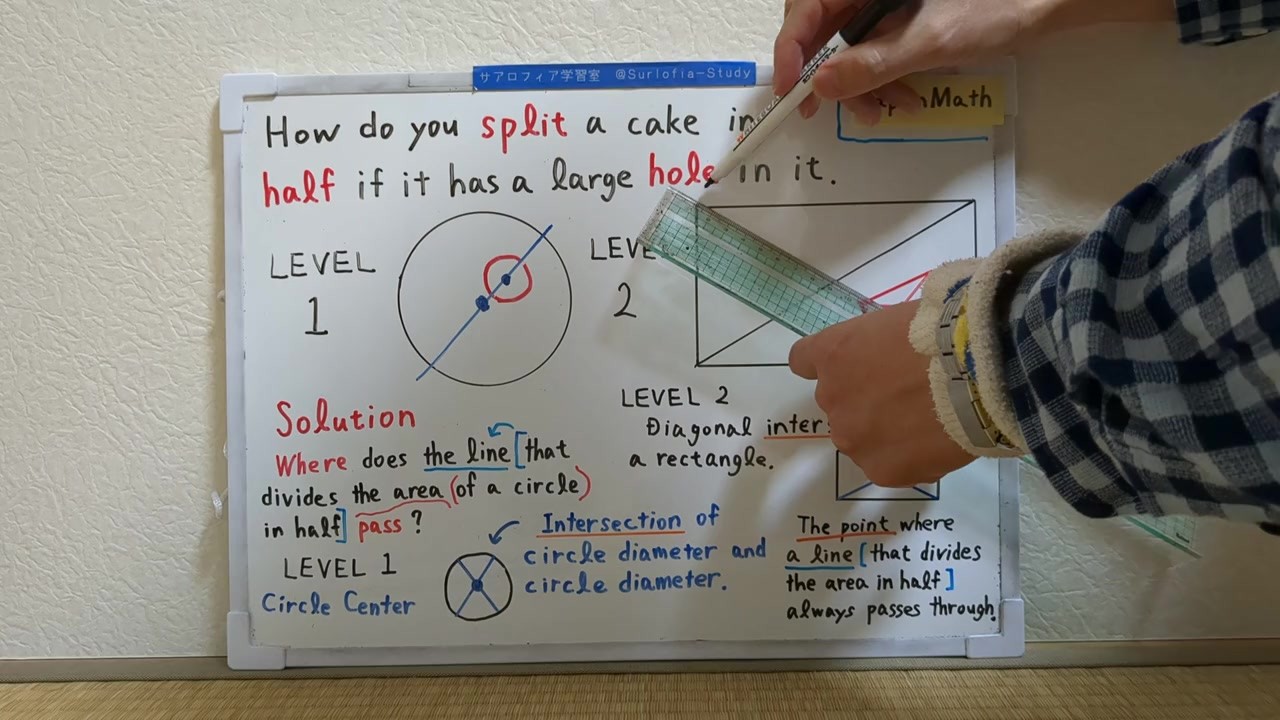 サアロフィア学習室 @Surlofia-Study
Math
How do you split a cake in
half if it has a large hole in it.
LEVEL
1
2
Solution
Where does the line [that
divides the area (of a circle)
in half] pass ?
LEVEL 1
Circle Center
Intersection of
circle diameter and
circle diameter.
LEVEL 2
Diagonal
a rectangle.
The point where
a line [that divides
the area in half]
always passes through.